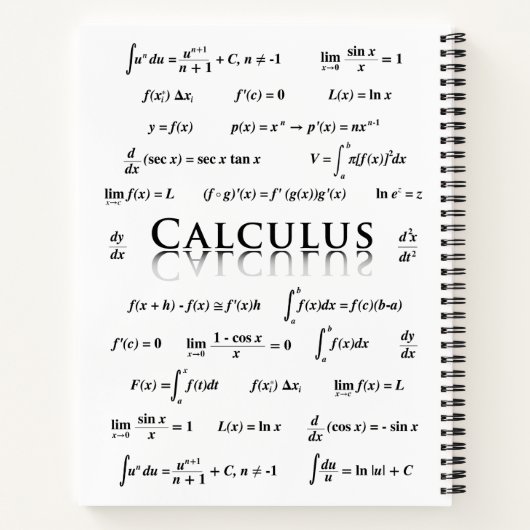 ∫uⁿ du = uⁿ⁺¹/(n + 1) + C, n ≠ -1    lim x→0 sin x/x = 1
f(xᵢ*) Δxᵢ    f'(c) = 0    L(x) = ln x
y = f(x)    p(x) = xⁿ → p'(x) = nxⁿ⁻¹
d/dx (sec x) = sec x tan x    V = ∫ₐᵇ π[f(x)]²dx
lim x→c f(x) = L    (f ∘ g)'(x) = f' (g(x))g'(x)    ln eᶻ = z
dy/dx    CALCULUS    d²x/dt²
f(x + h) - f(x) ≅ f'(x)h    ∫ₐᵇ f(x)dx = f(c)(b-a)
f'(c) = 0    lim x→0 (1 - cos x)/x = 0    ∫ₐᵇ f(x)dx    dy/dx
F(x) = ∫ₐˣ f(t)dt    f(xᵢ*) Δxᵢ    lim x→c f(x) = L
lim x→0 sin x/x = 1    L(x) = ln x    d/dx (cos x) = - sin x
∫uⁿ du = uⁿ⁺¹/(n + 1) + C, n ≠ -1    ∫du/u = ln |u| + C